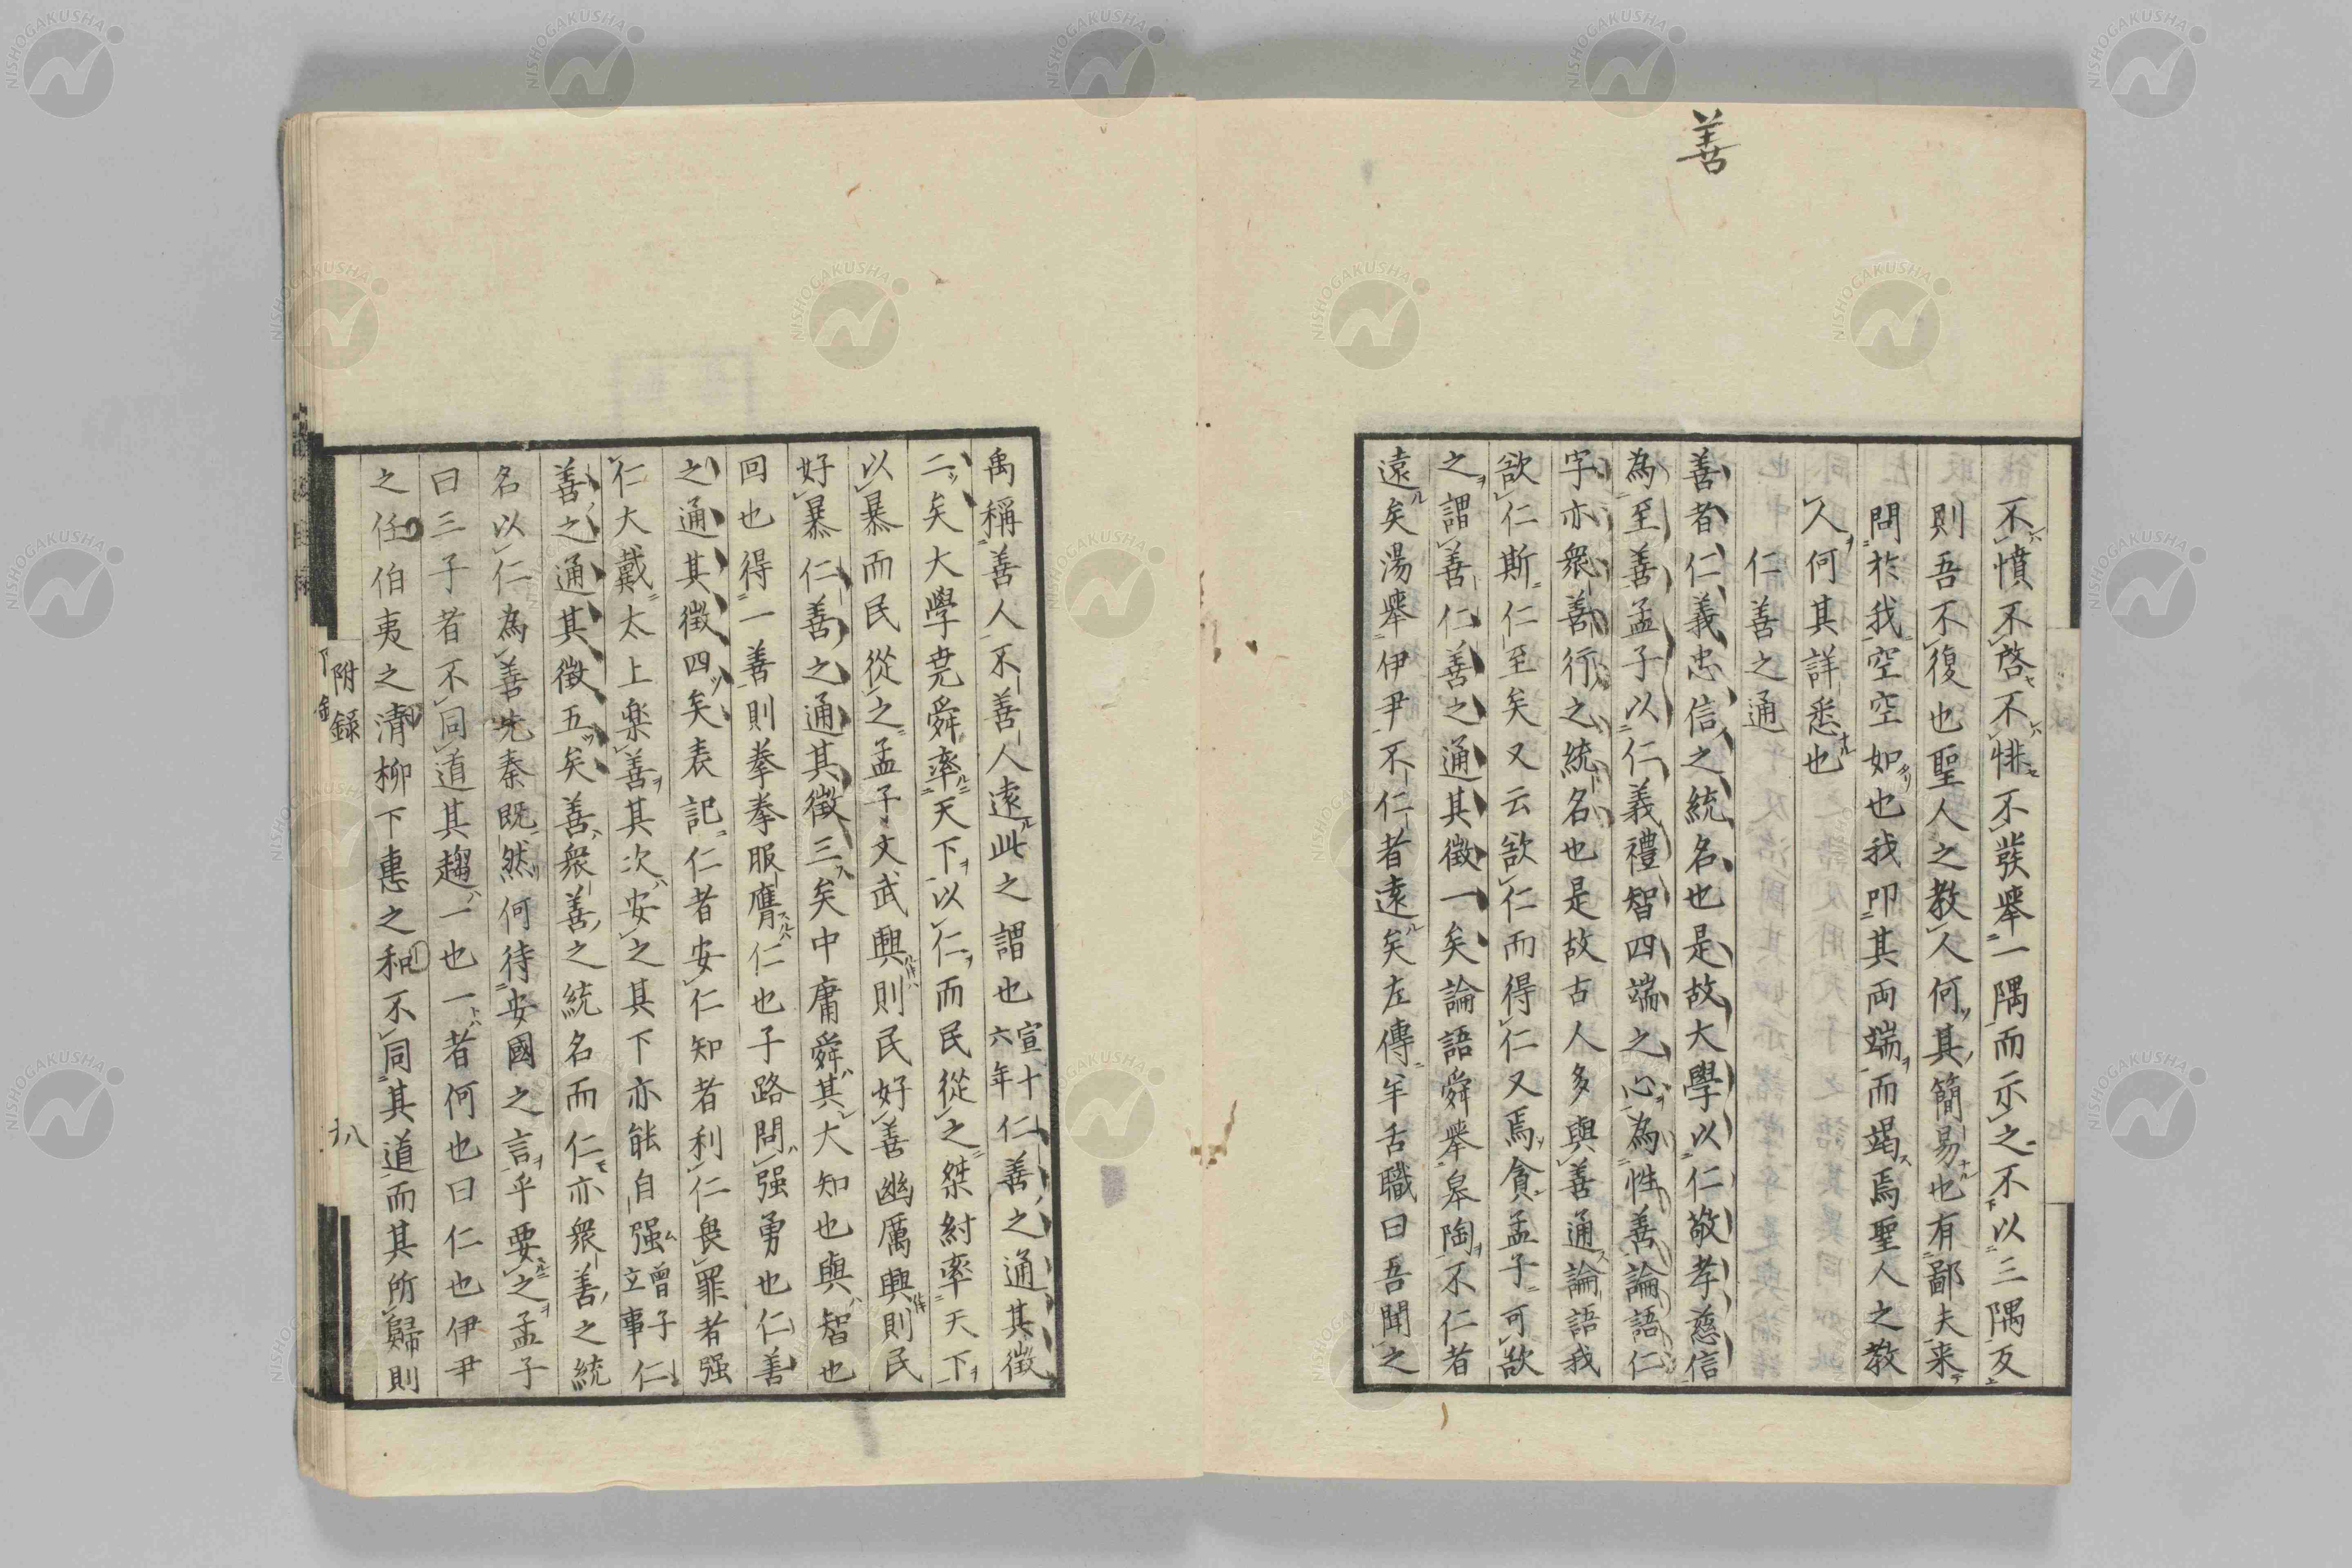 善
不憤不啓不悱不發舉一隅而示之不以三隅反
則吾不復也聖人之教人何其簡易也有鄙夫来
問於我空空如也我叩其両端而竭焉聖人之教
人何其詳悉也
仁善之通
善者仁義忠信之統名也是故大學以仁敬孝慈信
為至善孟子以仁義禮智四端之心為性善論語仁
字亦衆善行之統名也是故古人多與善通論語我
欲仁斯仁至矣又云欲仁而得仁又焉貪孟子可欲
之謂善仁善之通其徴一矣論語舜舉皋陶不仁者
遠矣湯舉伊尹不仁者遠矣左傳羊舌職曰吾聞之
禹稱善人不善人遠此之謂也宣十六年仁善之通其徴
二矣大學尭舜率天下以仁而民從之桀紂率天下
以暴而民從之孟子文武興則民好善幽厲興則民
好暴仁善之通其徴三矣中庸舜其大知也與智也
回也得一善則拳拳服膺仁也子路問强勇也仁善
之通其徴四矣表記仁者安仁知者利仁畏罪者强
仁大戴太上楽善其次安之其下亦能自强曽子立事仁
善之通其徴五矣善衆善之統名而仁亦衆善之統
名以仁為善先秦既然何待安國之言乎要之孟子
曰三子者不同道其趨一也一者何也曰仁也伊尹
之任伯夷之清柳下惠之和不同其道而其所歸則
附録
十八
NISHOGAKUSHA